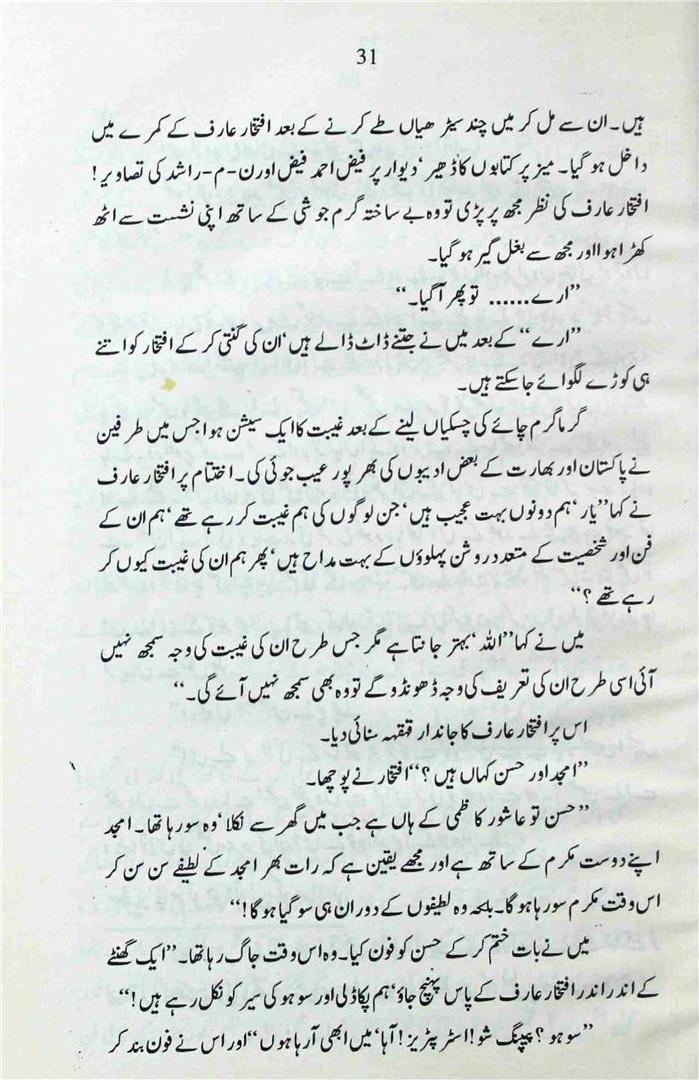 31
ہیں۔ ان سے مل کر میں چند سیڑھیاں طے کرنے کے بعد افتخار عارف کے کمرے میں
داخل ہو گیا۔ میز پر کتابوں کا ڈھیر ‘ دیوار پر فیض احمد فیض اور ن-م-راشد کی تصاویر!
افتخار عارف کی نظر مجھ پر پڑی تو وہ بے ساختہ گرم جوشی کے ساتھ اپنی نشست سے اٹھ
کھڑا ہوا اور مجھ سے بغل گیر ہو گیا۔
”ارے...... تو پھر آگیا۔“
”ارے“ کے بعد میں نے جتنے ڈاٹ ڈالے ہیں ‘ ان کی گنتی کر کے افتخار کو اتنے
ہی کوڑے لگوائے جاسکتے ہیں۔
گرما گرم چائے کی چسکیاں لینے کے بعد غیبت کا ایک سیشن ہوا جس میں طرفین
نے پاکستان اور بھارت کے بعض ادیبوں کی بھرپور عیب جوئی کی۔ اختتام پر افتخار عارف
نے کہا ”یار ‘ ہم دونوں بہت عجیب ہیں ‘ جن لوگوں کی ہم غیبت کر رہے تھے ‘ ہم ان کے
فن اور شخصیت کے متعدد روشن پہلوؤں کے بہت مداح ہیں ‘ پھر ہم ان کی غیبت کیوں کر
رہے تھے؟“
میں نے کہا ”اللہ ‘ بہتر جانتا ہے مگر جس طرح ان کی غیبت کی وجہ سمجھ نہیں
آئی اسی طرح ان کی تعریف کی وجہ ڈھونڈو گے تو وہ بھی سمجھ نہیں آئے گی۔“
اس پر افتخار عارف کا جاندار قہقہہ سنائی دیا۔
”امجد اور حسن کہاں ہیں؟“ افتخار نے پوچھا۔
”حسن تو عاشور کاظمی کے ہاں ہے جب میں گھر سے نکلا ‘ وہ سو رہا تھا۔ امجد
اپنے دوست مکرم کے ساتھ ہے اور مجھے یقین ہے کہ رات بھر امجد کے لطیفے سن سن کر
اس وقت مکرم سو رہا ہوگا۔ بلکہ وہ لطیفوں کے دوران ہی سو گیا ہوگا!“
میں نے بات ختم کر کے حسن کو فون کیا۔ وہ اس وقت جاگ رہا تھا۔ ”ایک گھنٹے
کے اندر اندر افتخار عارف کے پاس پہنچ جاؤ ‘ ہم پکاڈلی اور سوہو کی سیر کو نکل رہے ہیں!“
”سوہو؟ پیپنگ شو! اسٹرپٹریز! آہا ‘ میں ابھی آرہا ہوں“ اور اس نے فون بند کر